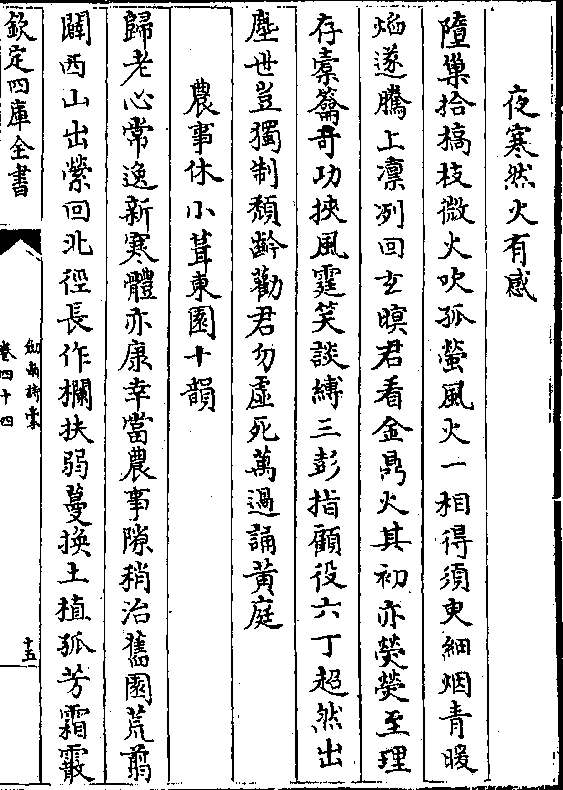 夜寒然火有感
墮巢拾槁枝微火吹孤螢風火一相得須臾細烟青暖
焰遂騰上凛冽回玄暝君看金鼎火其初亦熒熒至理
存橐籥奇功挾風霆笑談縛三彭指顧役六丁超然出
塵世豈獨制頽齡勸君勿虚死萬過誦黄庭
農事休小葺東園十韻
歸老心常逸新寒體亦康幸當農事隙稍治舊園荒翦
闢西山出縈回北徑長作欄扶弱蔓換土植孤芳霜霰
欽定四庫全書
劍南詩稾
卷四十四
十五